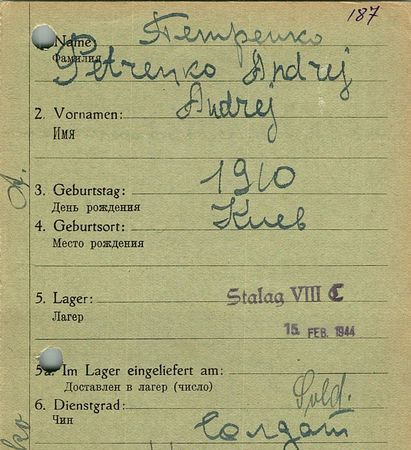 187
Петренко
1. Name:
Фамилия
Petrenko Andrej
2. Vornamen: Andrej
Имя
3. Geburtstag: 1910
День рождения
4. Geburtsort: Киев
Место рождения
5. Lager: Stalag VIII C
Лагер
15. FEB. 1944
5a. Im Lager eingeliefert am:
Доставлен в лагер (число)
Sold.
6. Dienstgrad:
Чин
Солдат